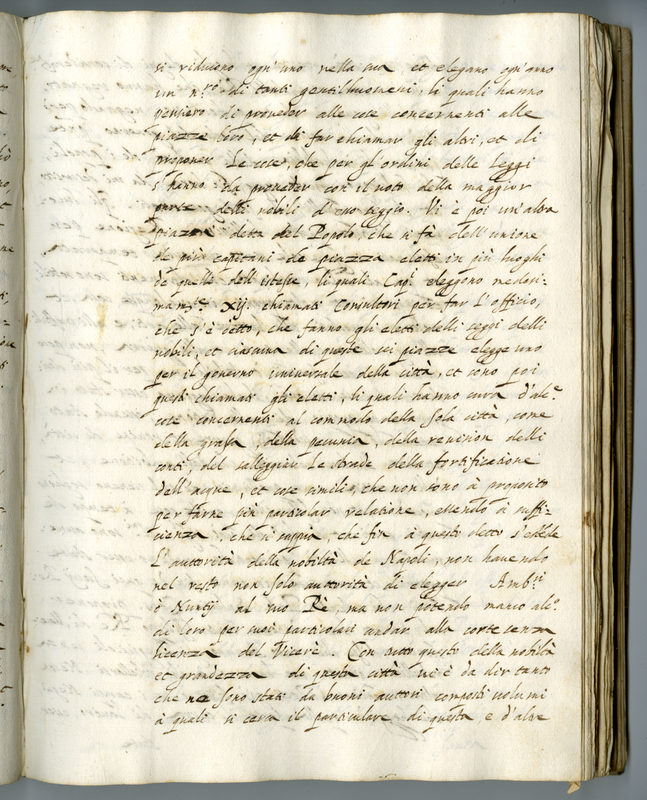 si riducono ogn'uno nella sua, et elegano ogn'anno
un n.ro di tanti gentilhuomeni, li quali hanno
pensiero di proveder alle cose concernenti alle
piazze loro, et di far chiamar gli altri, et di
proponer le cose, che per gl'ordini delle leggi
s'hanno da proveder con il voto della maggior
parte delli nobili d'esso seggio. Vi è poi un'altra
piazza detta del Popolo, che si fà dell'unione
de più capitani de piazza eletti in più luoghi
de quelle dell'istesse, li quali Cap.i eleggono medesi-
mam.te XIJ. chiamati Consultori per far l'officio,
che s'è detto, che fanno gli eletti delli seggi delli
nobili, et ciascuna di queste sei piazze elegge uno
per il governo universale della città, et sono poi
questi chiamati gli eletti, li quali hanno cura d'alc.e
cose concernenti al commodo della sola città, come
della grassa, della pecunia, della revision delli
conti, del salleggiar le strade della fortificatione
dell'acque, et cose simili, che non sono à proposito
per farne più particolar relatione, essendo à suffi-
cienza, che si sappia, che fin à questo detto s'estende
l'autorità della nobiltà de Napoli, non havendo
nel resto non solo auttorità di elegger Amb.ri
ò Nuntij al suo Rè, ma non potendo manco alc.o
di loro per suoi particolari andar alla corte senza
licenza del Vicerè. Con tutto questo della nobiltà
et grandezza di questa città vi è da dir tanto
che ne sono stati da buoni auttori composti volumi
à quali si cerca il particulare di questa, e d'altre